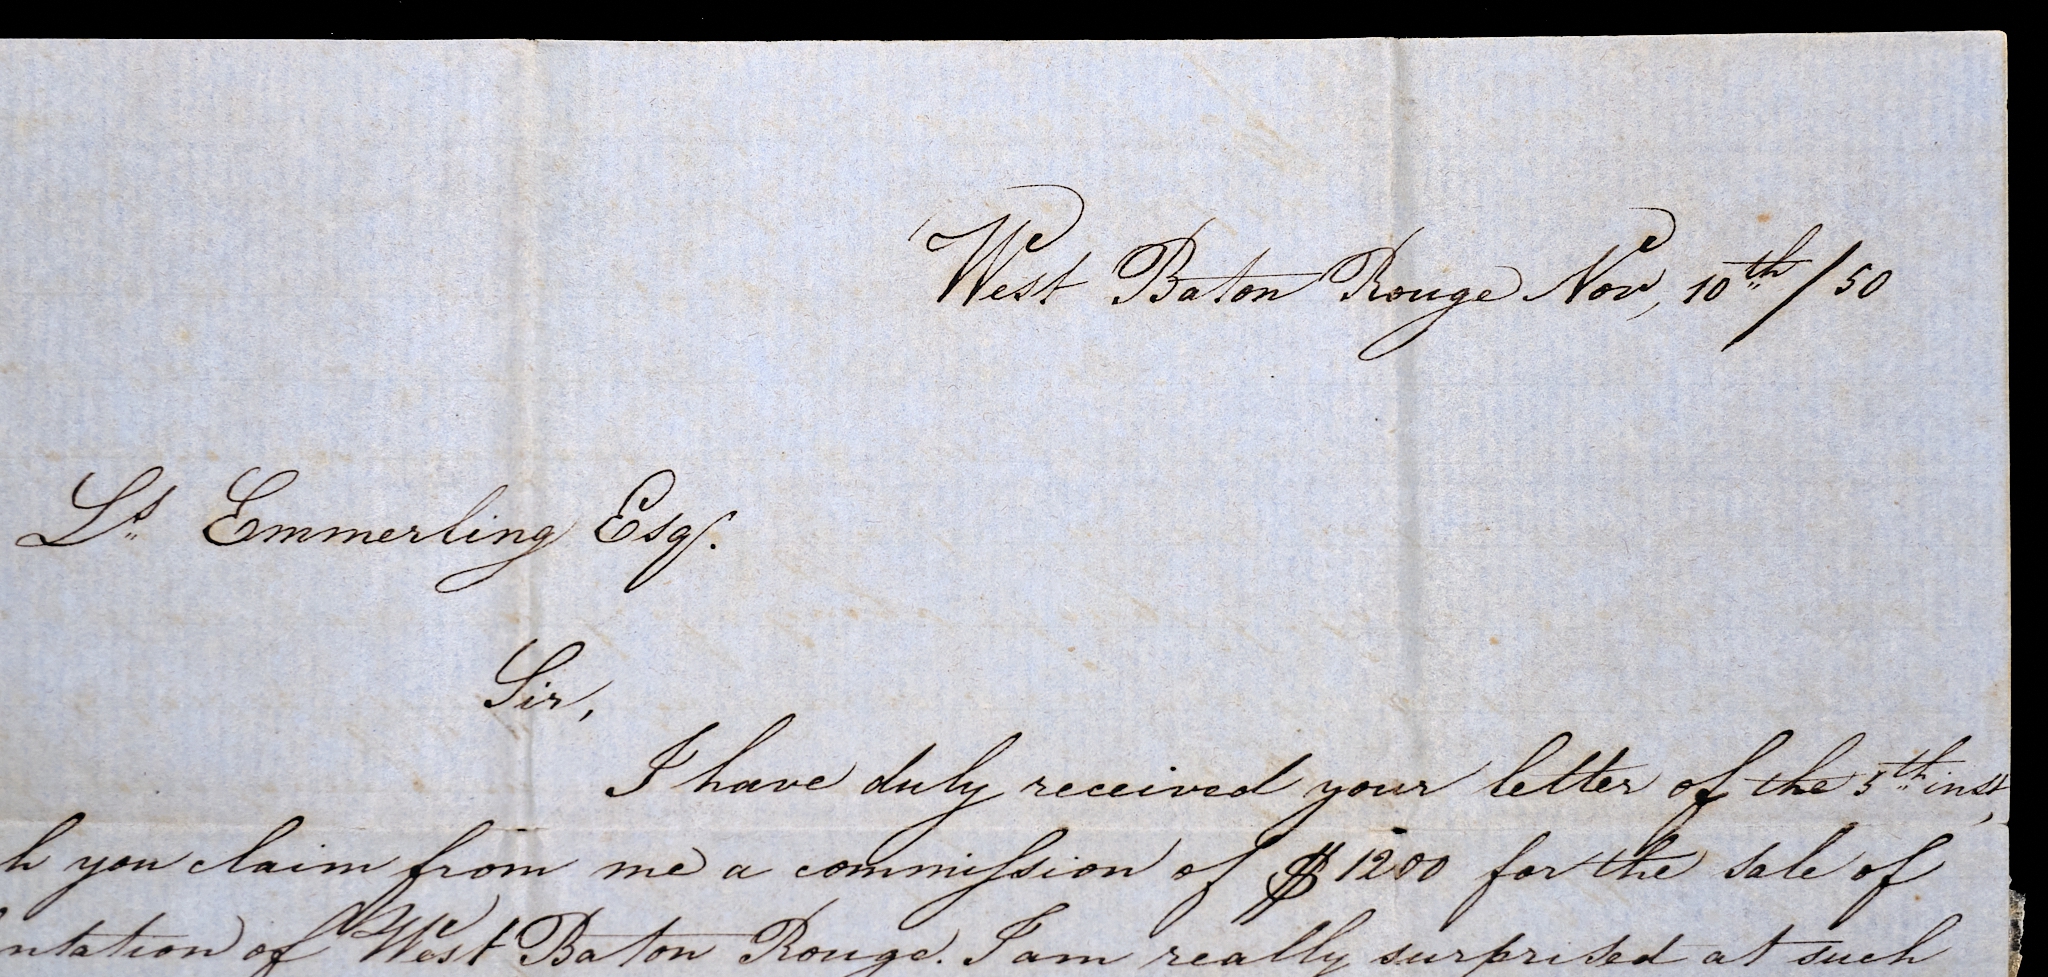 West Baton Rouge Nov, 10th / 50
Ls Emmerling Esq.
Sir,
I have duly received your letter of the 5th inst,
h you claim from me a commission of $1200 for the sale of
ntation of West Baton Rouge. I am really surprised at such